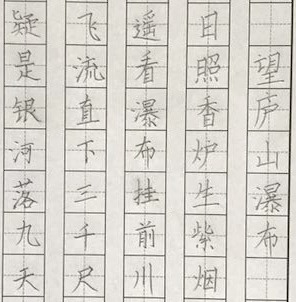 望庐山瀑布
日照香炉生紫烟
遥看瀑布挂前川
飞流直下三千尺
疑是银河落九天